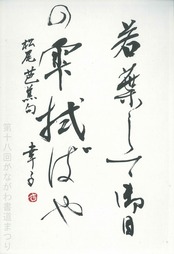 若葉して御目
の雫拭ばや
松尾芭蕉句
幸子
第十八回かながわ書道まつり